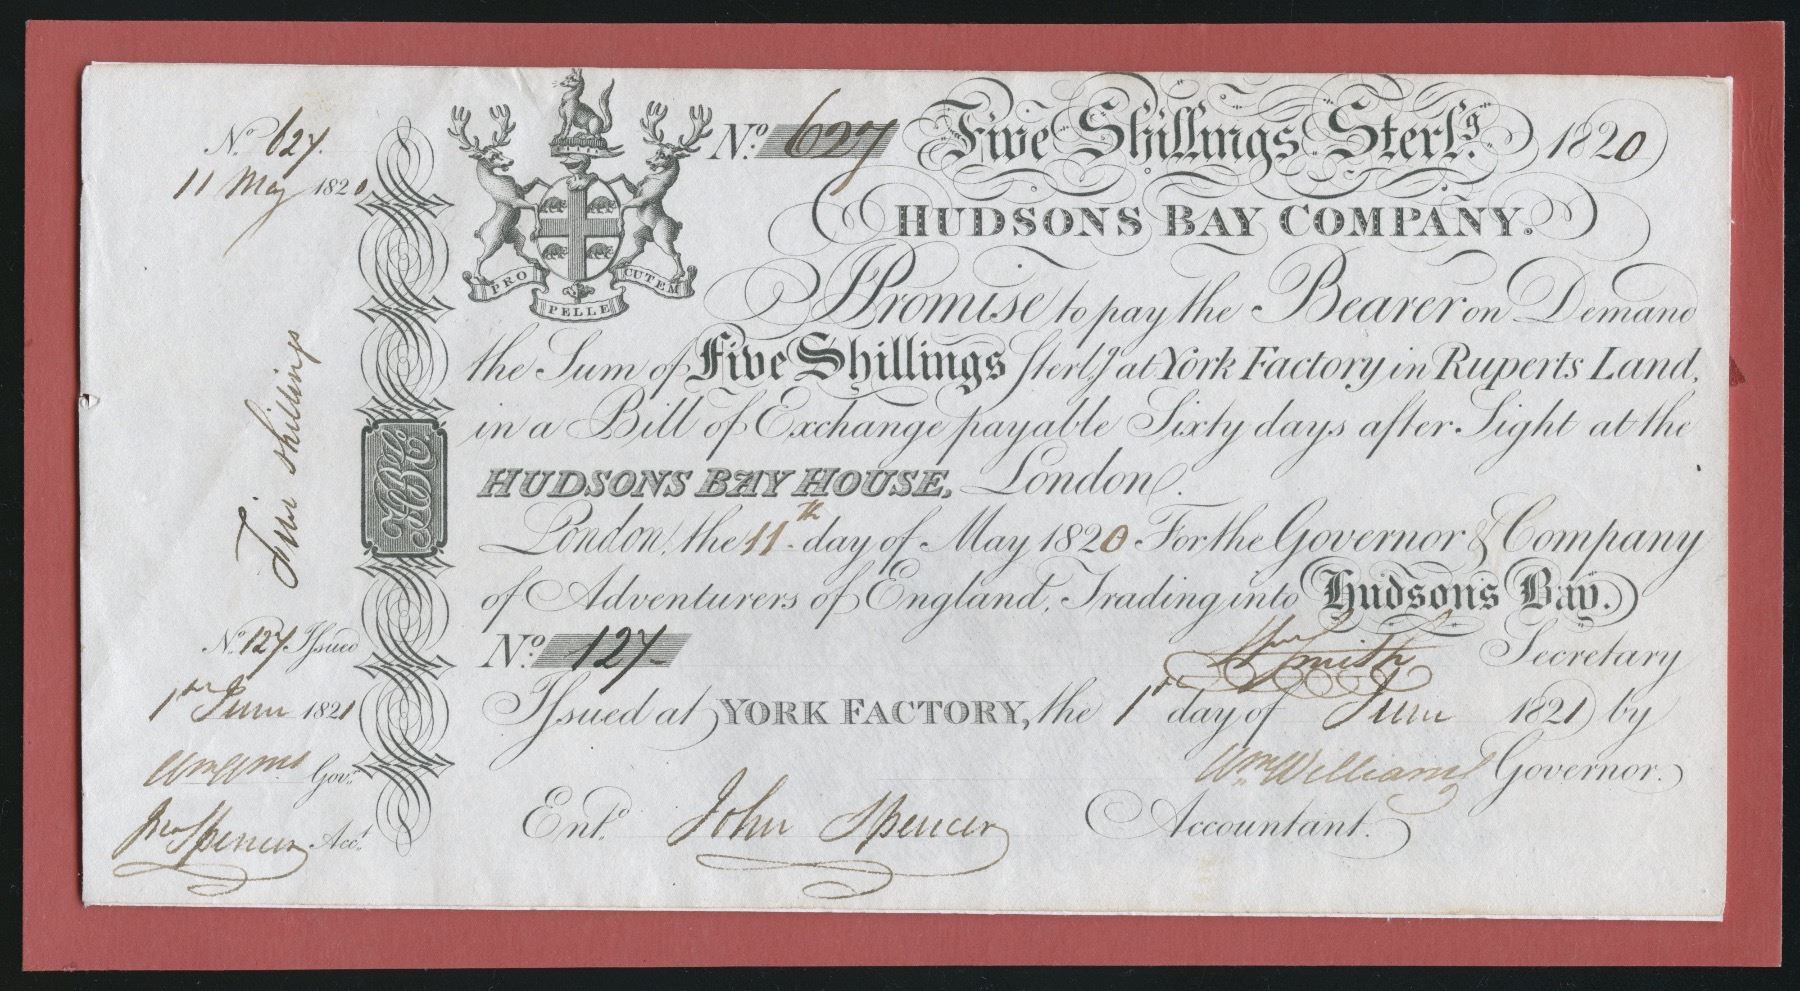 No. 627.
11 May 1820
Five shillings
No. 127 Issued
1st June 1821
Wm Wms Govr.
Jno Spencer Acct.
HBC.
PRO PELLE CUTEM
No. 627 Five Shillings Sterlg. 1820
HUDSONS BAY COMPANY.
Promise to pay the Bearer on Demand
the Sum of Five Shillings Sterlg. at York Factory in Ruperts Land,
in a Bill of Exchange payable Sixty days after Sight at the
HUDSONS BAY HOUSE, London.
London, the 11th day of May 1820 For the Governor & Company
of Adventurers of England, Trading into Hudson's Bay.
No. 127 Smith Secretary
Issued at YORK FACTORY, the 1st day of June 1821 by
Wm. Williams Governor.
Entd. John Spencer Accountant.